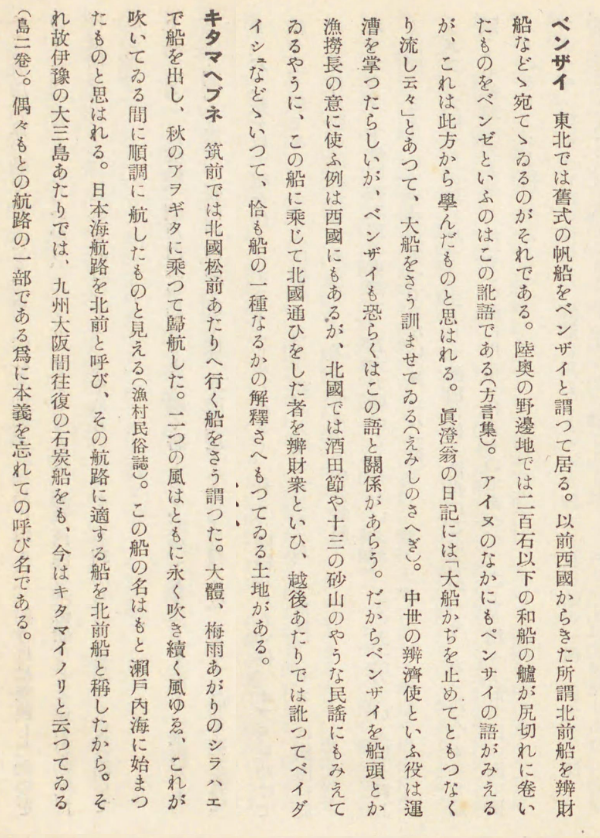 ベンザイ　東北では舊式の帆船をベンザイと謂つて居る。以前西國からきた所謂北前船を辨財
船などゝ宛てゝゐるのがそれである。陸奥の野邊地では二百石以下の和船の艫が尻切れに卷い
たものをベンゼといふのはこの訛語である(方言集)。アイヌのなかにもベンサイの語がみえる
が、これは此方から學んだものと思はれる。眞澄翁の日記には「大船かぢを止めてともつなく
り流し云々」とあつて、大船をさう訓ませてゐる(えみしのさへぎ)。中世の辨濟使といふ役は運
漕を掌つたらしいが、ベンザイも恐らくはこの語と關係があらう。だからベンザイを船頭とか
漁撈長の意に使ふ例は西國にもあるが、北國では酒田節や十三の砂山のやうな民謡にもみえて
ゐるやうに、この船に乘じて北國通ひをした者を辨財衆といひ、越後あたりでは訛つてベイダ
イシュなどゝいつて、恰も船の一種なるかの解釋さへもつてゐる土地がある。
キタマヘブネ　筑前では北國松前あたりへ行く船をさう謂つた。大體、梅雨あがりのシラハエ
で船を出し、秋のアヲギタに乘つて歸航した。二つの風はともに永く吹き續く風ゆゑ、これが
吹いてゐる間に順調に航したものと見える(漁村民俗誌)。この船の名はもと瀨戸內海に始まつ
たものと思はれる。日本海航路を北前と呼び、その航路に適する船を北前船と稱したから。そ
れ故伊豫の大三島あたりでは、九州大阪間往復の石炭船をも、今はキタマイノリと云つてゐる
(島二卷)。偶々もとの航路の一部である爲に本義を忘れての呼び名である。